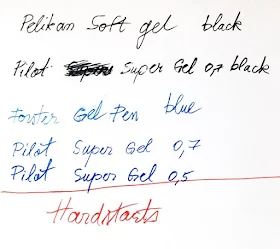 Pelikan Soft gel black
Pilot Super Gel 0,7 black
Forster Gel Pen blue
Pilot Super Gel 0,7
Pilot Super Gel 0,5
Hardstarts